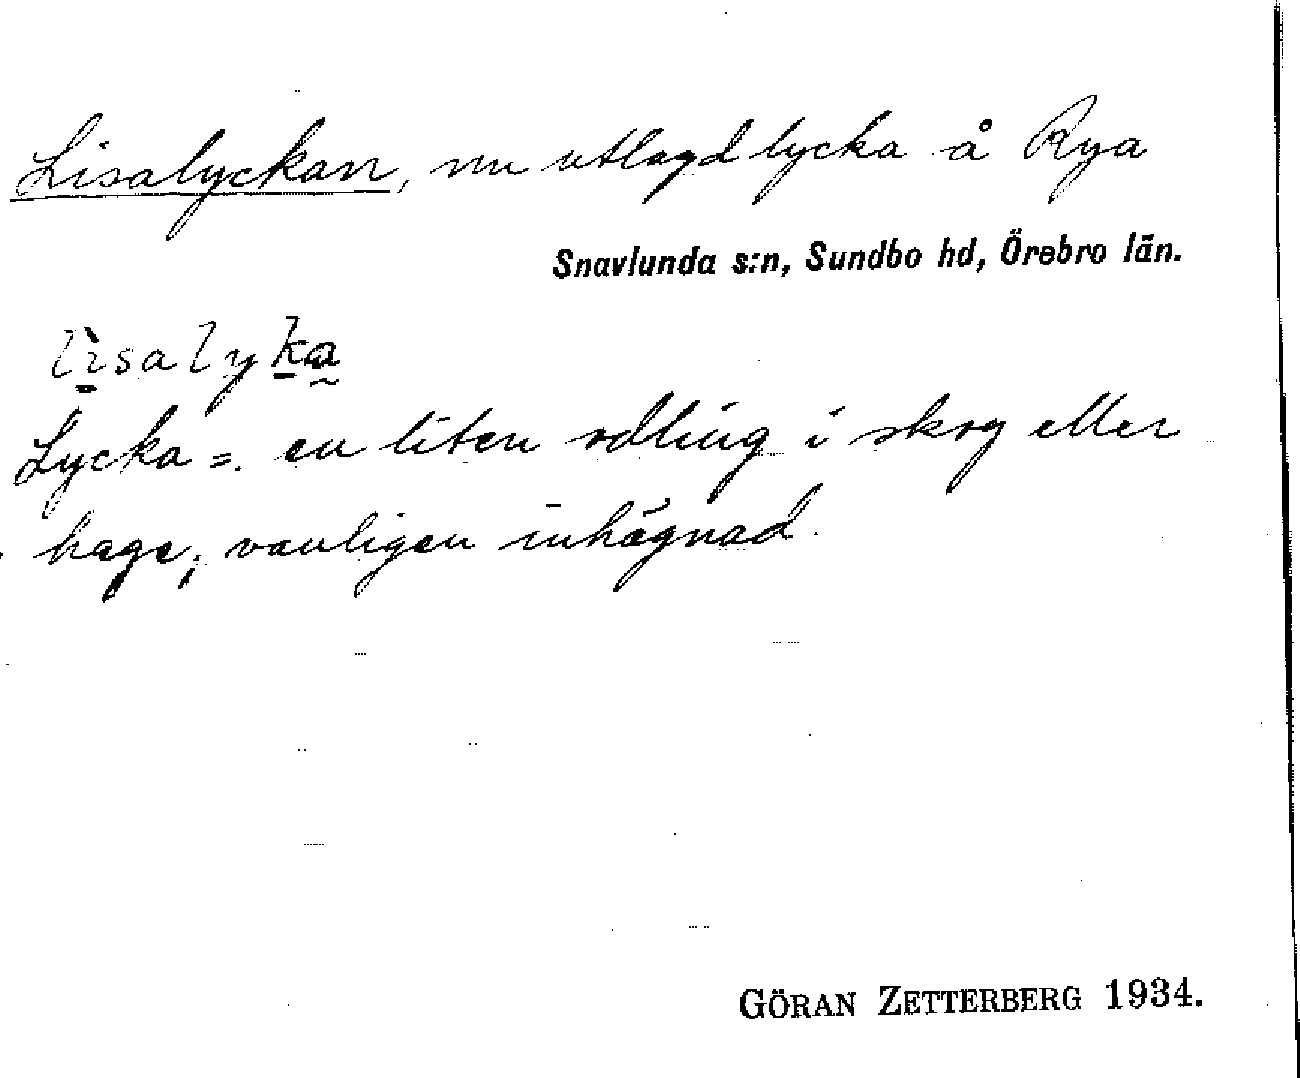 Lisalyckan, nu utlagd lycka å Rya
Snavlunda s:n, Sundbo hd, Örebro län.
lìsalyka
Lycka = en liten odling i skog eller
hage, vanligen inhägnad.
GÖRAN ZETTERBERG 1934.